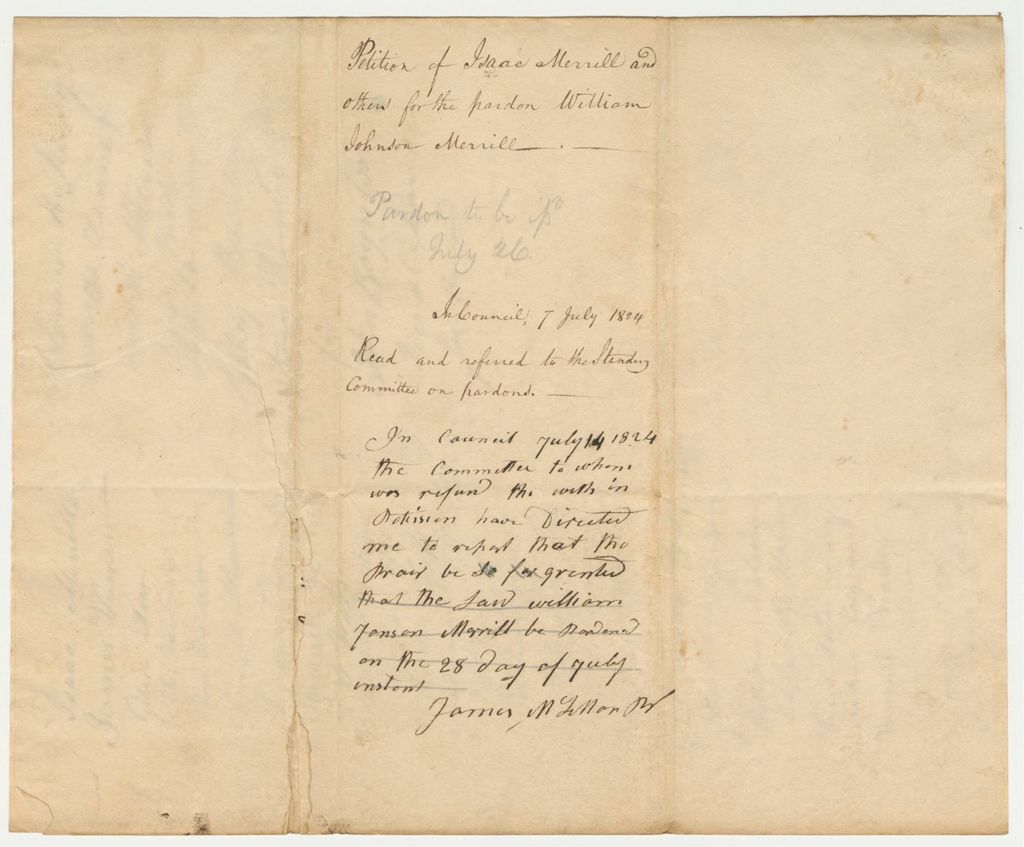 Petition of Isaac Merrill and
others for the pardon William
Johnson Merrill
Pardon to be
July 26
In Council, 7 July 1824
Read and referred to the Standing
Committee on pardons.
In Council July 14 1824
the Committee to whom
was refurd the with in
have Directed
me to report that the
Prair be So far grented
that the Said william
Jonson Merrill be Pardond
on the 28 day of July
instant
James